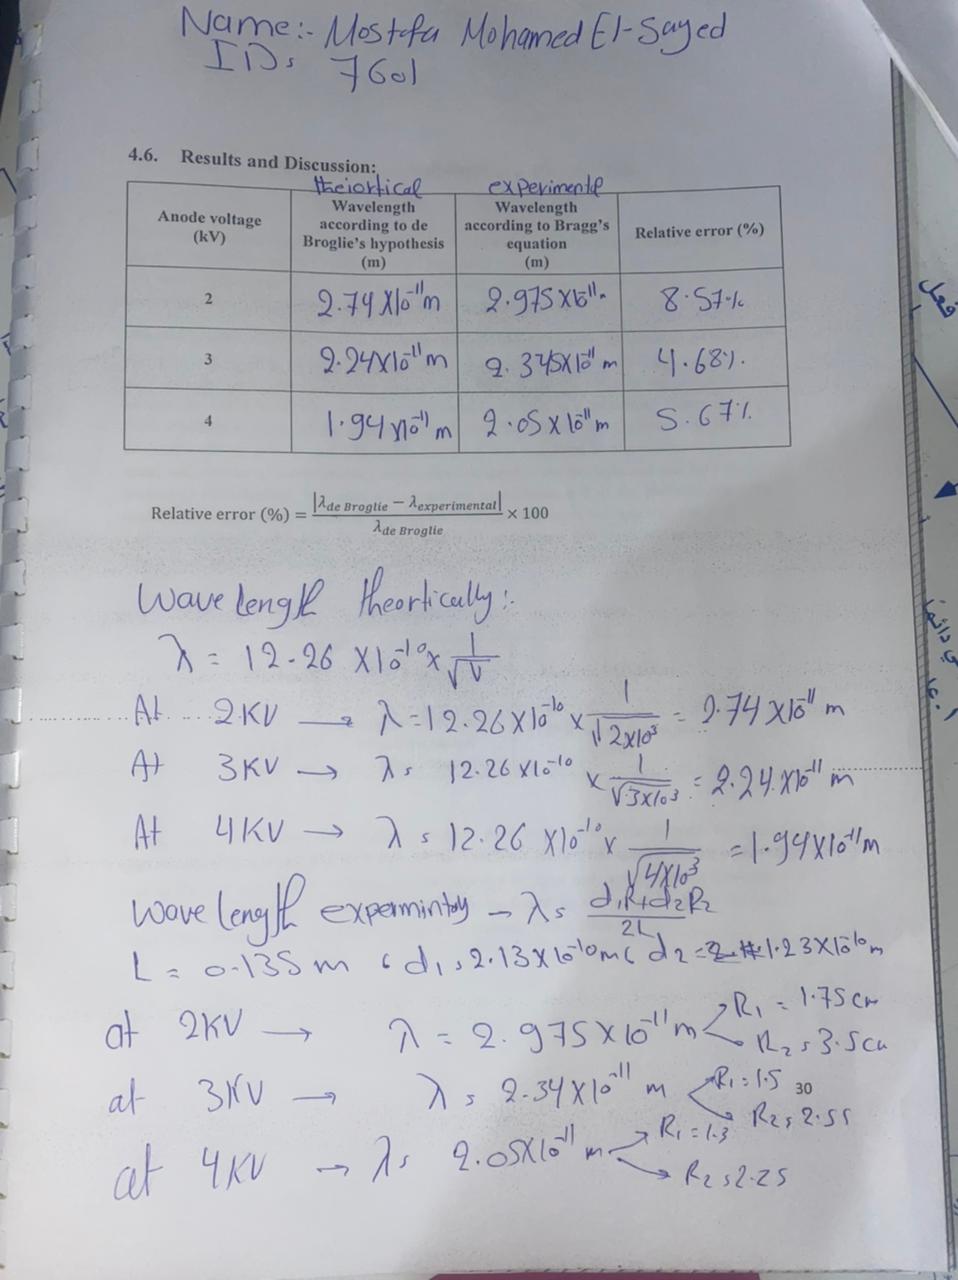 Name:- Mostafa Mohamed El-Sayed
ID: 7601
4.6. Results and Discussion:
theiortical experimental
Anode voltage (kV) | Wavelength according to de Broglie's hypothesis (m) | Wavelength according to Bragg's equation (m) | Relative error (%)
2 | 2.74 X10⁻¹¹ m | 2.975 X10⁻¹¹ m | 8.57%
3 | 2.24X10⁻¹¹ m | 2.345X10⁻¹¹ m | 4.68%
4 | 1.94 X10⁻¹¹ m | 2.05 X 10⁻¹¹ m | 5.67%
Relative error (%) = |λde Broglie − λexperimental| / λde Broglie × 100
Wavelength theortically:
λ = 12.26 X10⁻¹⁰ x 1/√V
At 2KV → λ = 12.26 X10⁻¹⁰ x 1/√2x10³ = 2.74 X10⁻¹¹ m
At 3KV → λ = 12.26 X10⁻¹⁰ x 1/√3x10³ = 2.24 X10⁻¹¹ m
At 4KV → λ = 12.26 X10⁻¹⁰ x 1/√4X10³ = 1.94X10⁻¹¹ m
Wavelength → λ = d₁R₁+d₂R₂ / 2L
L = 0.135 m , d₁ = 2.13X10⁻¹⁰ m , d₂ = 1.23X10⁻¹⁰ m
at 2KV → λ = 2.975 X10⁻¹¹ m R₁ = 1.75 cm
R₂ = 3.5 cm
at 3KV → λ = 2.34X10⁻¹¹ m R₁ = 1.5 30
R₂ = 2.55
at 4KV → λ = 2.05X10⁻¹¹ m R₁ = 1.3
R₂ = 2.25